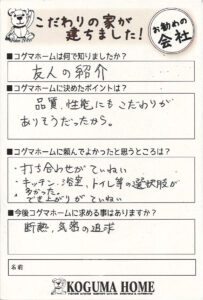 こだわりの家が
建ちました!
お勧めの
会社
■コグマホームは何で知りましたか?
友人の紹介
■コグマホームに決めたポイントは?
品質、性能にもこだわりが
ありそうだったから。
■コグマホームに頼んでよかったと思うところは?
・打ち合わせがていねい
・キッチン、浴室、トイレ等の選択肢が
多かった。
・でき上がりがていねい
■今後コグマホームに求める事はありますか?
断熱、気密の追求
名前
KOGUMA HOME